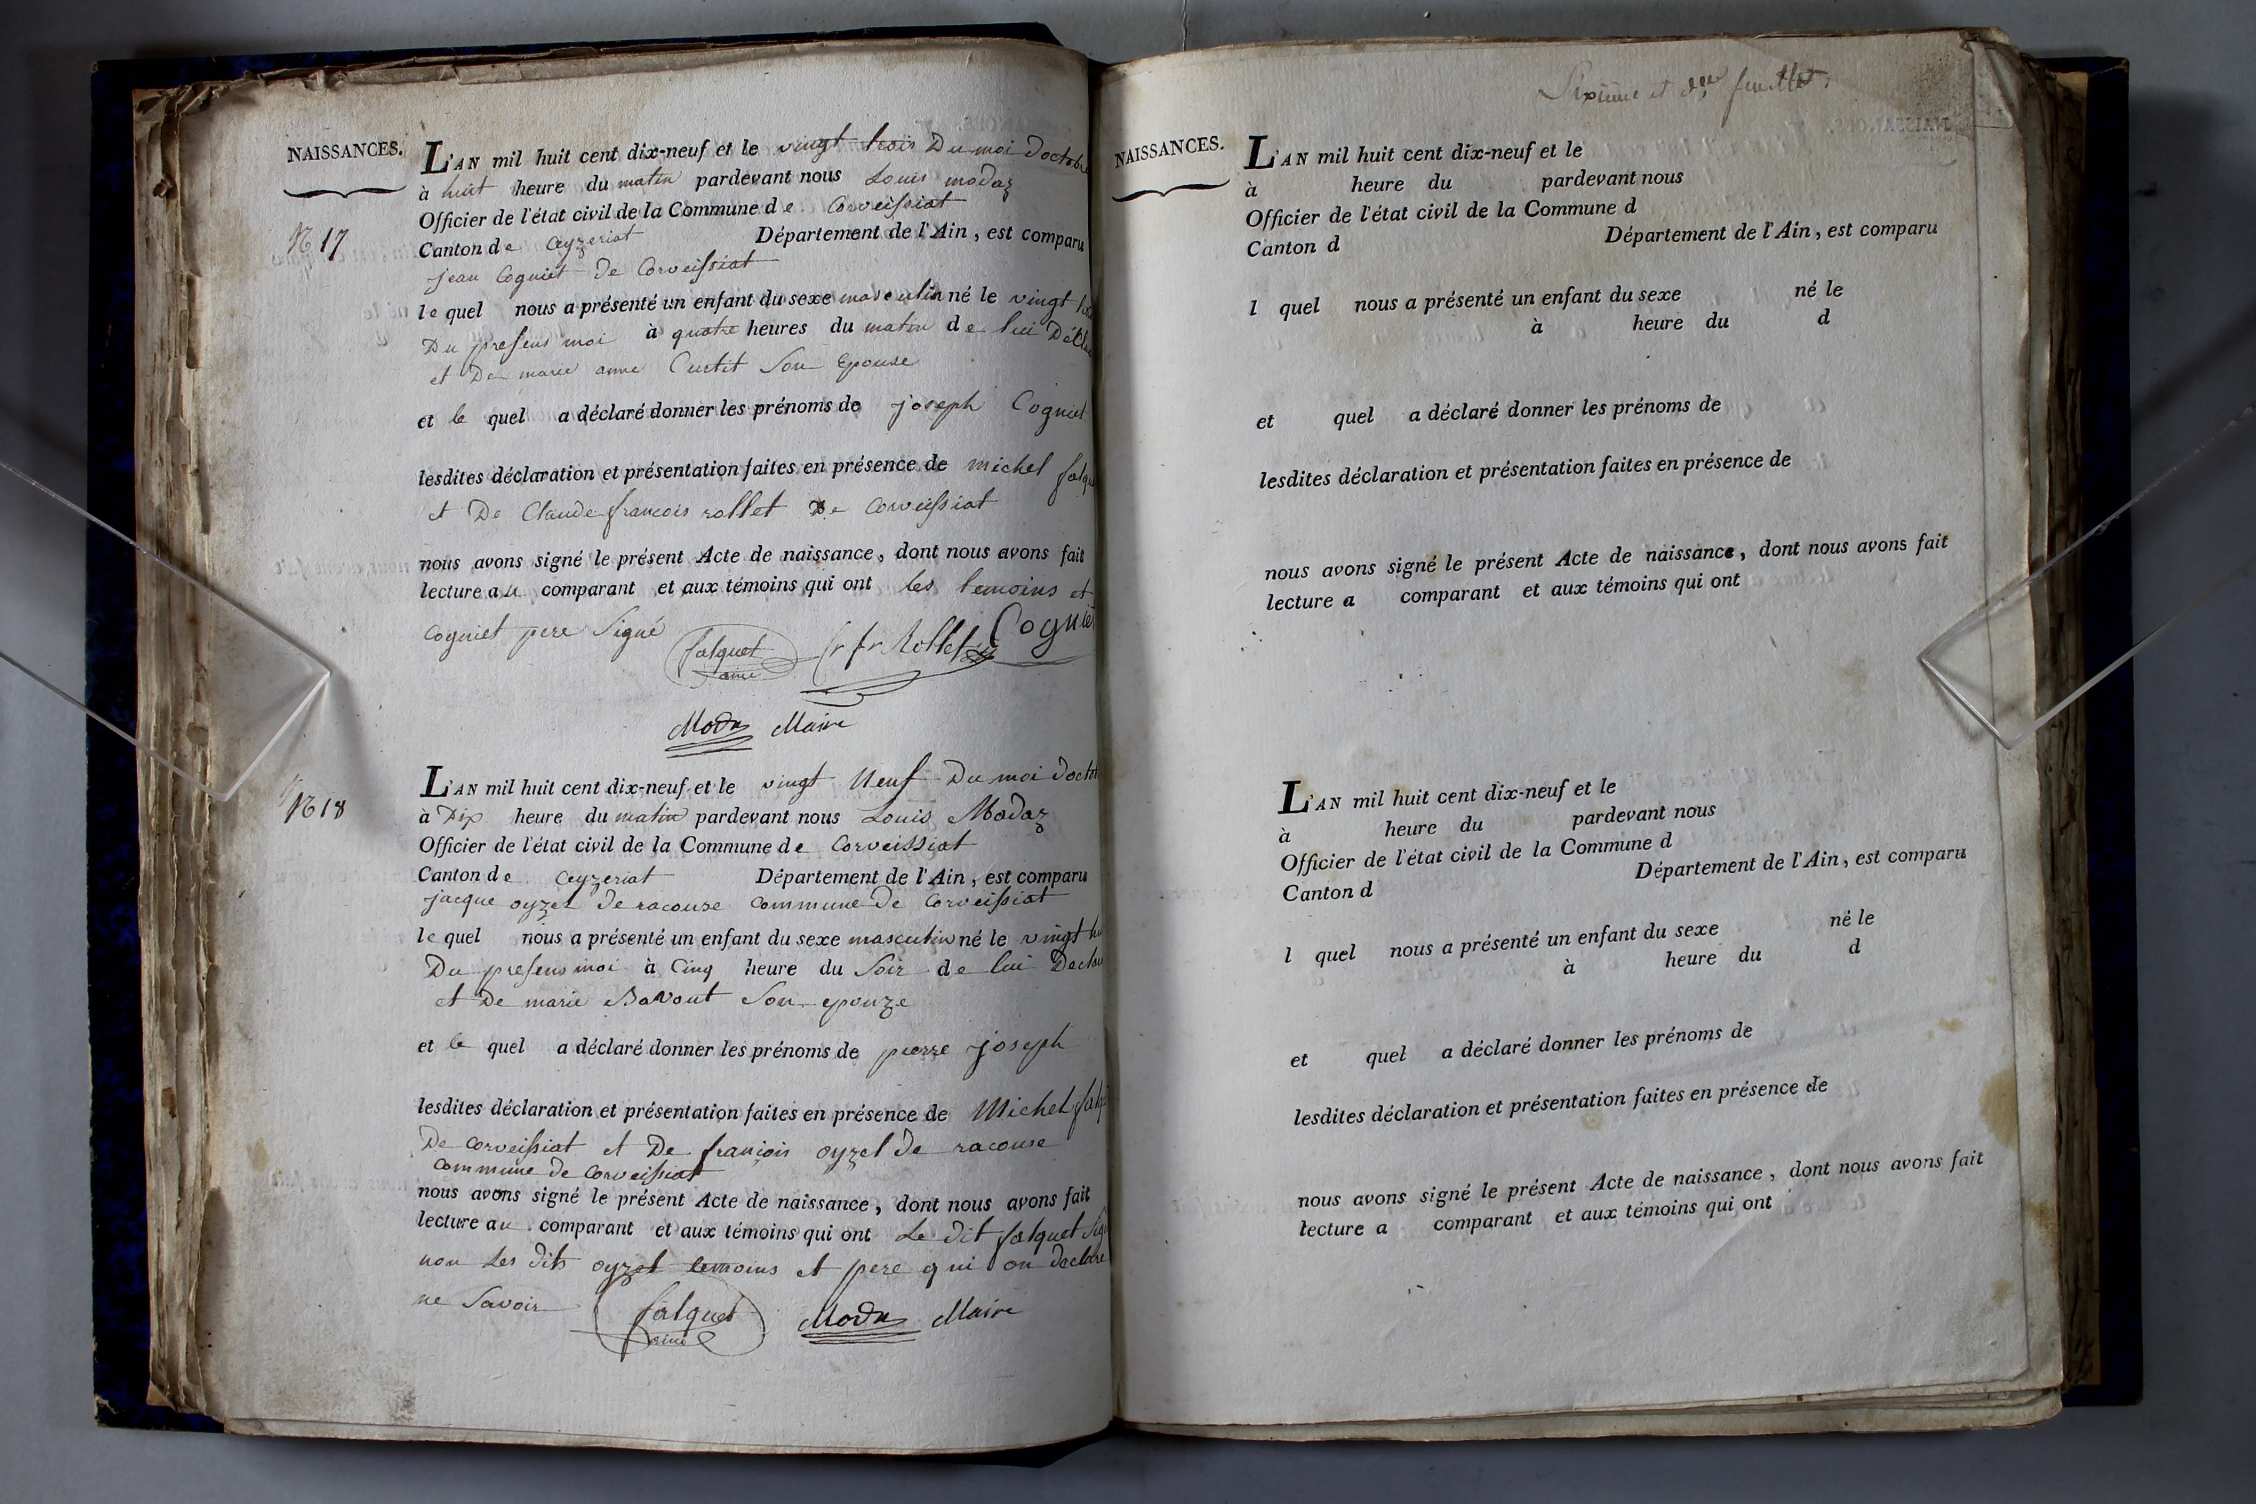 NAISSANCES.
L'AN mil huit cent dix-neuf et le vingt trois Du moi doctobre
à huit heure du matin pardevant nous Louis modaz
Officier de l'état civil de la Commune de Corveissiat
N 17
Canton de Ceyzeriat Département de l'Ain, est comparu
jean Cogniet de Corveissiat
le quel nous a présenté un enfant du sexe masculin né le vingt
Du presens moi à quatre heures du matin de lui
et De marie anne Curtit Son Epouse
et le quel a déclaré donner les prénoms de joseph Cogniet
lesdites déclaration et présentation faites en présence de michel
et De Claude francois rollet De Corveissiat
nous avons signé le présent Acte de naissance, dont nous avons fait
lecture au comparant et aux témoins qui ont les temoins et
cogniet pere Signé
falquet
Rollet
Cogniet
Maire
N 18
L'AN mil huit cent dix-neuf et le vingt Neuf Du moi
à Dix heure du matin pardevant nous Louis Modaz
Officier de l'état civil de la Commune de Corveissiat
Canton de Ceyzeriat Département de l'Ain, est comparu
jacque oyzel de racouse commune De Corveissiat
le quel nous a présenté un enfant du sexe masculin né le vingt
Du presens moi à Cinq heure du Soir de lui
et De marie Bavout Son epouze
et le quel a déclaré donner les prénoms de pierre joseph
lesdites déclaration et présentation faites en présence de Michel
De corveissiat et De françois oyzel de racouse
commune de Corveissiat
nous avons signé le présent Acte de naissance, dont nous avons fait
lecture au comparant et aux témoins qui ont Le dit falquet
non Les dits oyzel temoins et pere qui on declare
ne Savoir
falquet
Maire
Sixieme et feuillet
NAISSANCES.
L'AN mil huit cent dix-neuf et le
à heure du pardevant nous
Officier de l'état civil de la Commune d
Canton d Département de l'Ain, est comparu
l quel nous a présenté un enfant du sexe né le
à heure du d
et quel a déclaré donner les prénoms de
lesdites déclaration et présentation faites en présence de
nous avons signé le présent Acte de naissance, dont nous avons fait
lecture a comparant et aux témoins qui ont
L'AN mil huit cent dix-neuf et le
à heure du pardevant nous
Officier de l'état civil de la Commune d
Canton d Département de l'Ain, est comparu
l quel nous a présenté un enfant du sexe né le
à heure du d
et quel a déclaré donner les prénoms de
lesdites déclaration et présentation faites en présence de
nous avons signé le présent Acte de naissance, dont nous avons fait
lecture a comparant et aux témoins qui ont